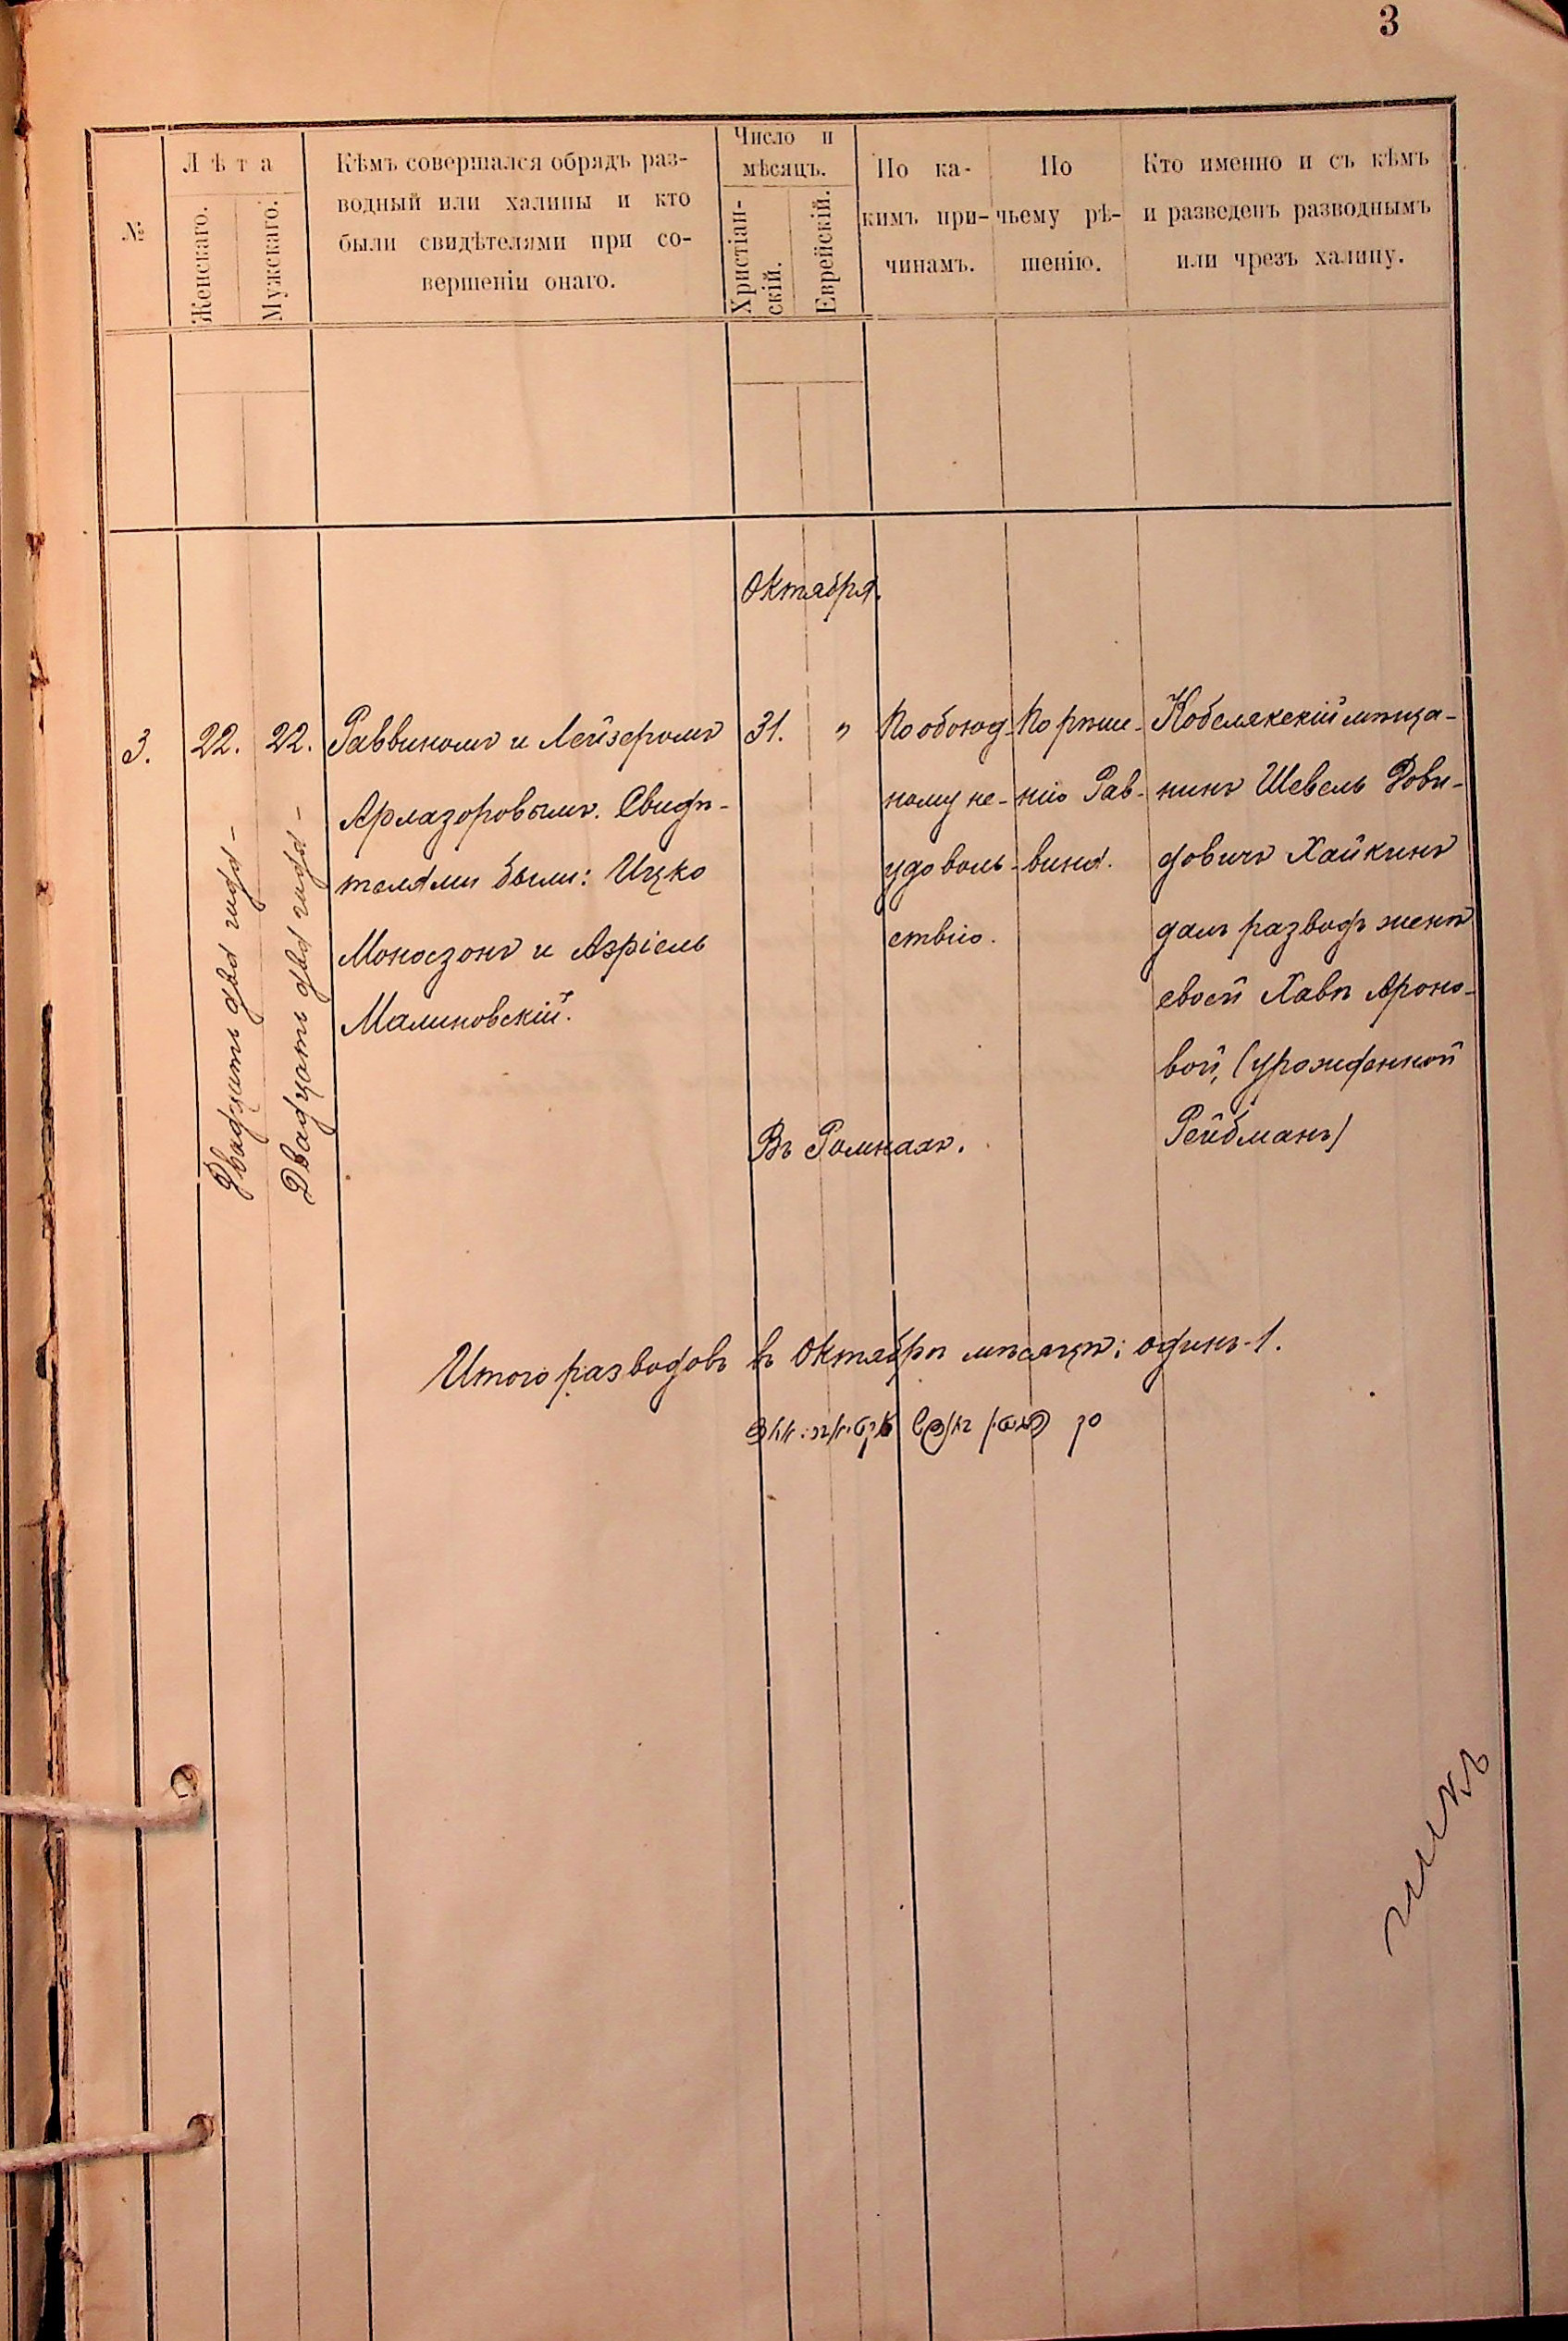 3
№
Лѣта
Женскаго.
Мужскаго.
Кѣмъ совершался обрядъ раз-
водный или халицы и кто
были свидѣтелями при со-
вершеніи онаго.
Число и
мѣсяцъ.
Христіан-
скій.
Еврейскій.
По ка-
кимъ при-
чинамъ.
По
чьему рѣ-
шенію.
Кто именно и съ кѣмъ
и разведенъ разводнымъ
или чрезъ халицу.
Октября.
3.
22.
Двадцать два года -
22.
Двадцать два года -
Раввиномъ и Лейзеромъ
Арлазоровымъ. Свидѣ-
телями были: Ицко
Моносзонъ и Азріель
Малиновскій.
31. "
Въ Ромнахъ.
По обоюд-
ному не-
удоволь-
ствію.
По рѣше-
нію Рав-
вина.
Кобелякскій мѣща-
нинъ Шевель Дови-
довичъ Хайкинъ
далъ разводъ женѣ
своей Хавѣ Ароно-
вой, (урожденной
Рейдманъ)
Итого разводовъ въ Октябрѣ мѣсяцѣ: одинъ - 1.